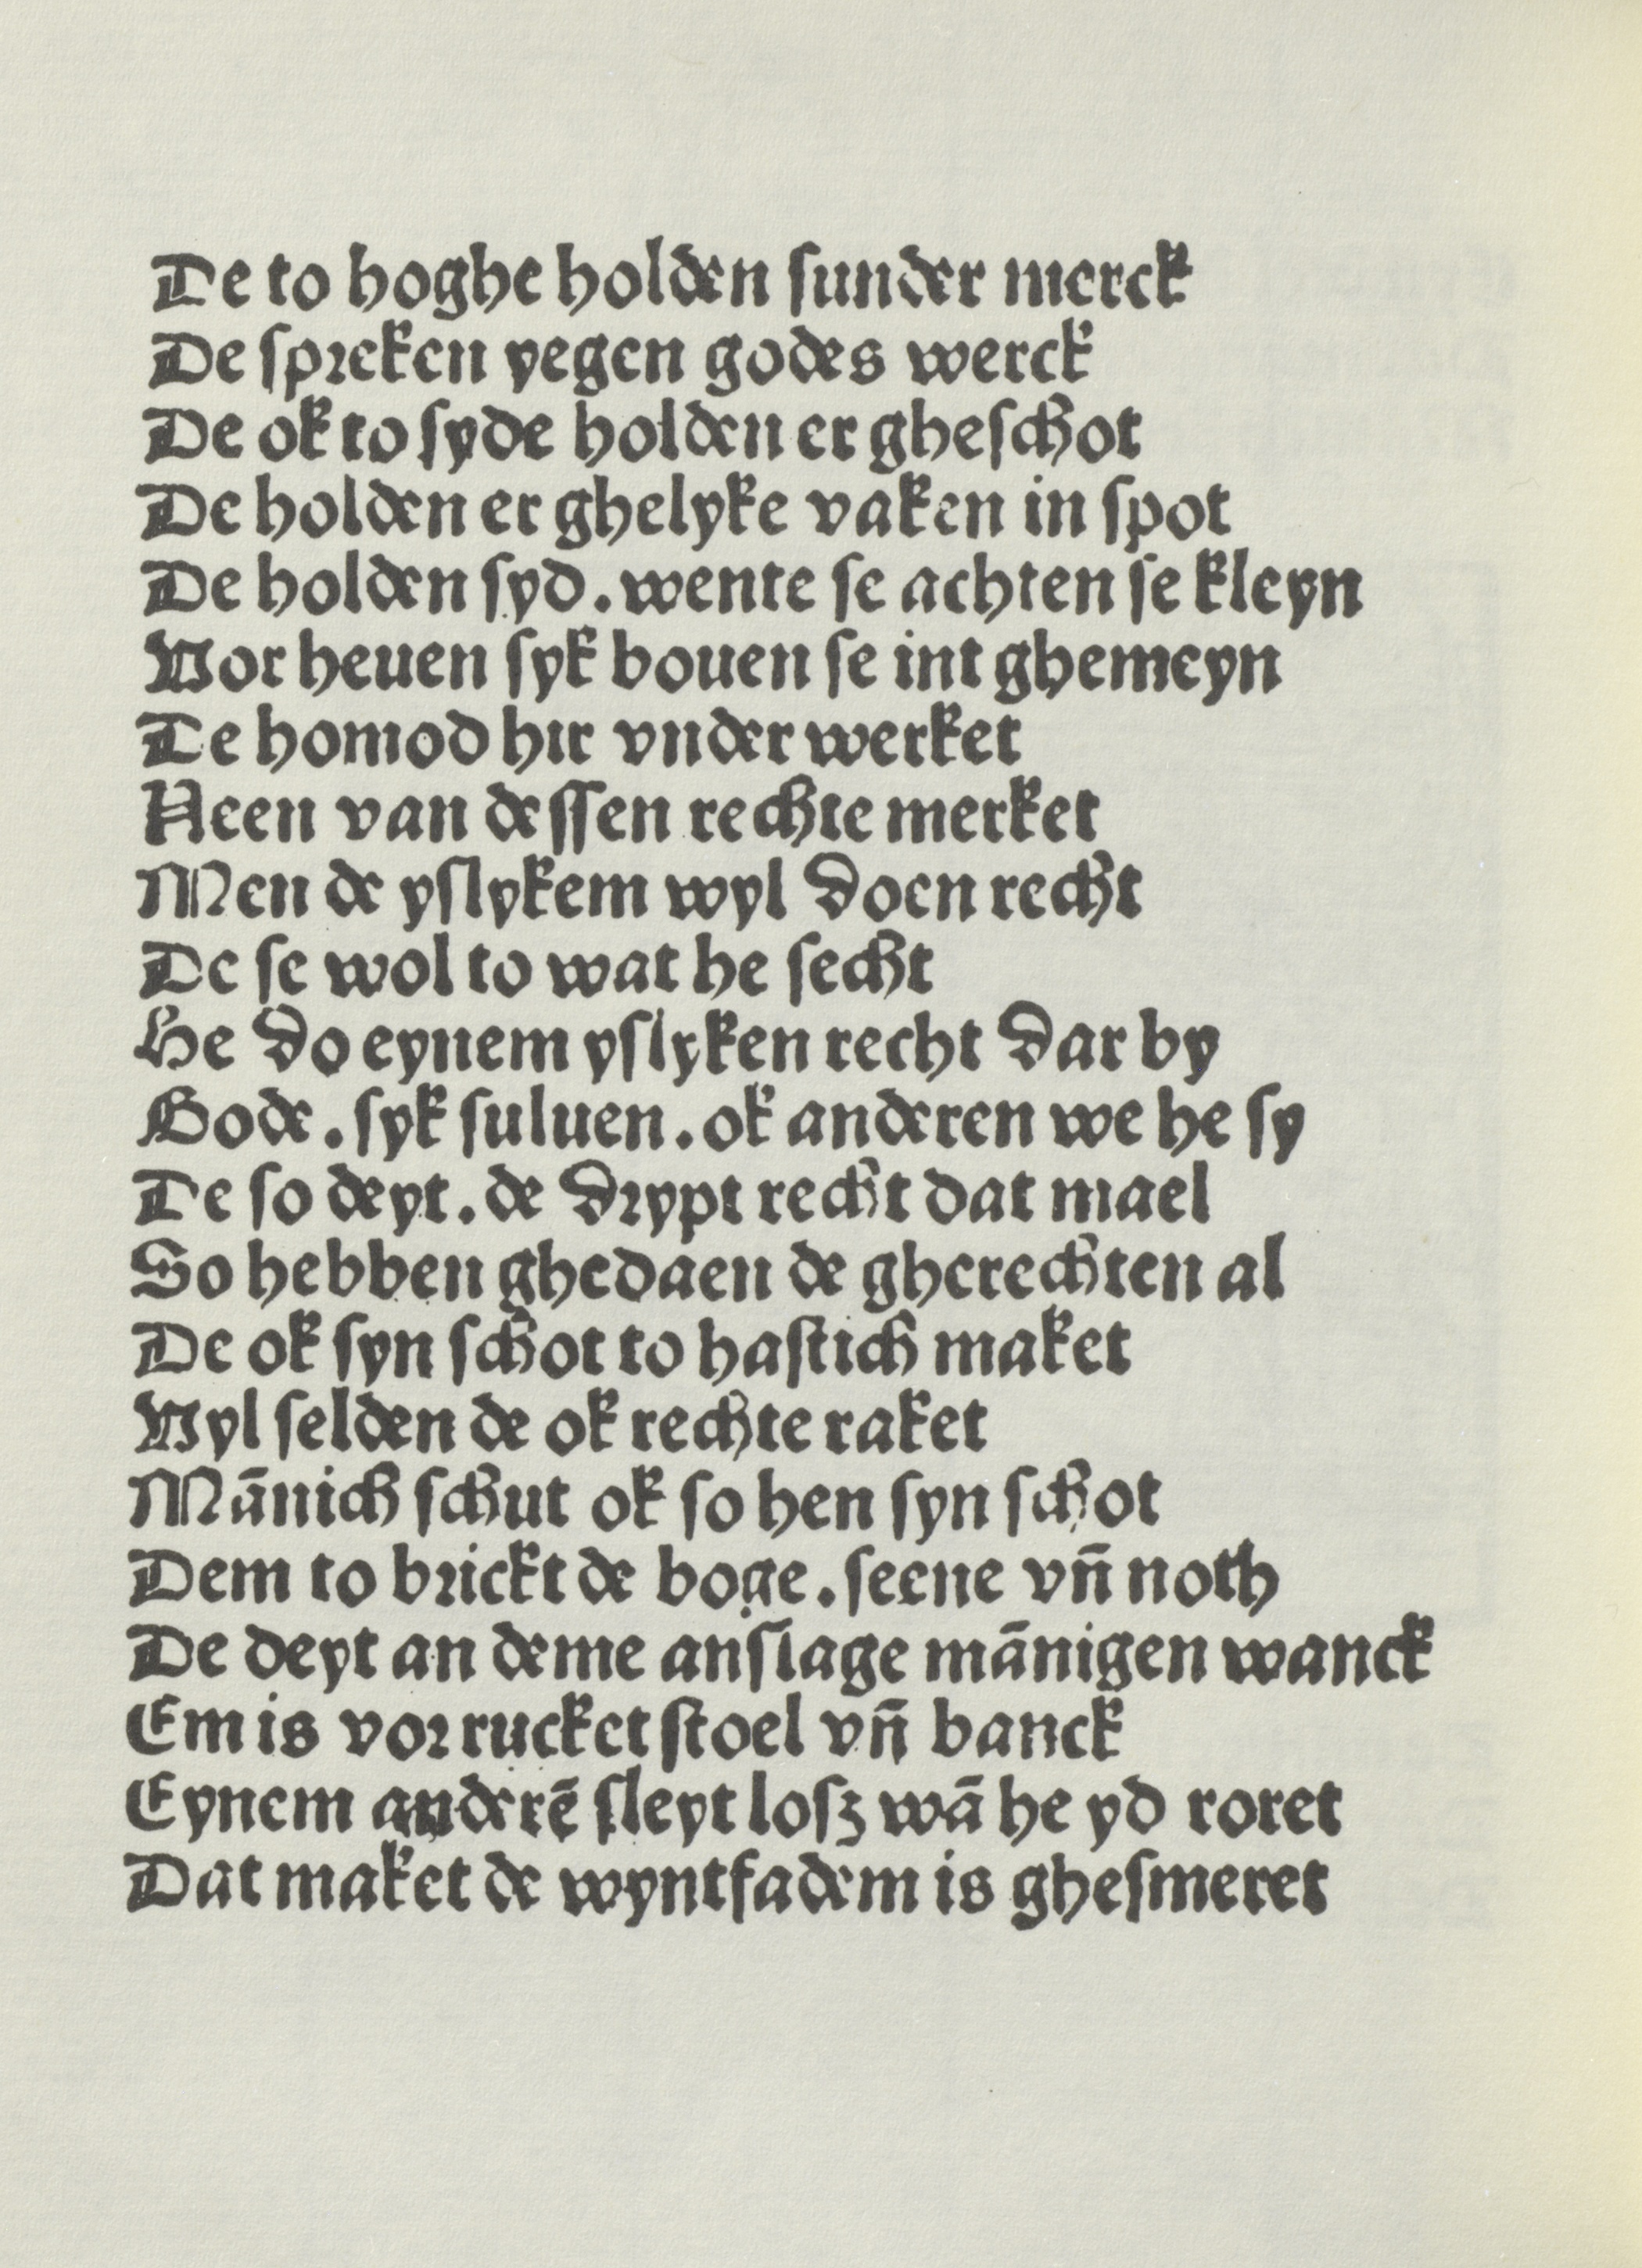 De to hoghe holden ſunder merck
De ſpꝛeken yegen godes werck
De ok to ſyde holden er gheſchot
De holden er ghelyke vaken in ſpot
De holden ſyd. wente ſe achten ſe kleyn
Vor heuen ſyk bouen ſe int ghemeyn
De homod hir vnder werket
Neen van deſſen rechte merket
Men de yſlykem wyl doen recht
De ſe wol to wat he ſecht
He do eynem yſlyken recht dar by
Gode. ſyk ſuluen. ok anderen we he ſy
De ſo deyt. de dꝛypt recht dat mael
So hebben ghedaen de gherechten al
De ok ſyn ſchot to haſtich maket
Vyl ſelden de ok rechte raket
Mānich ſchut ok ſo hen ſyn ſchot
Dem to bꝛickt de boge. ſeene vn̄ noth
De deyt an deme anſlage mānigen wanck
Em is voꝛ rucket ſtoel vn̄ banck
Eynem anderē ſleyt loſz wā he yd roret
Dat maket de wyntfadem is gheſmeret